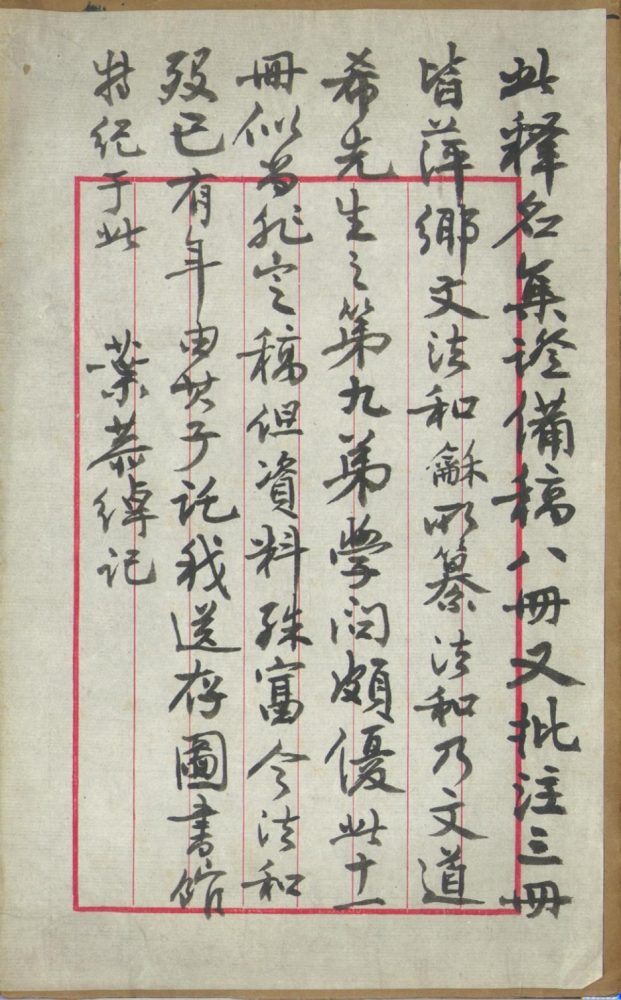 此释名集證備稿八冊又批注三冊
皆萍鄉文法和龢所纂法和乃文道
希先生之第九弟學问頗優此十一
冊似尚非定稿但資料殊富今法和
殁已有年由其子託我送存圖書館
特纪于此 葉恭绰记